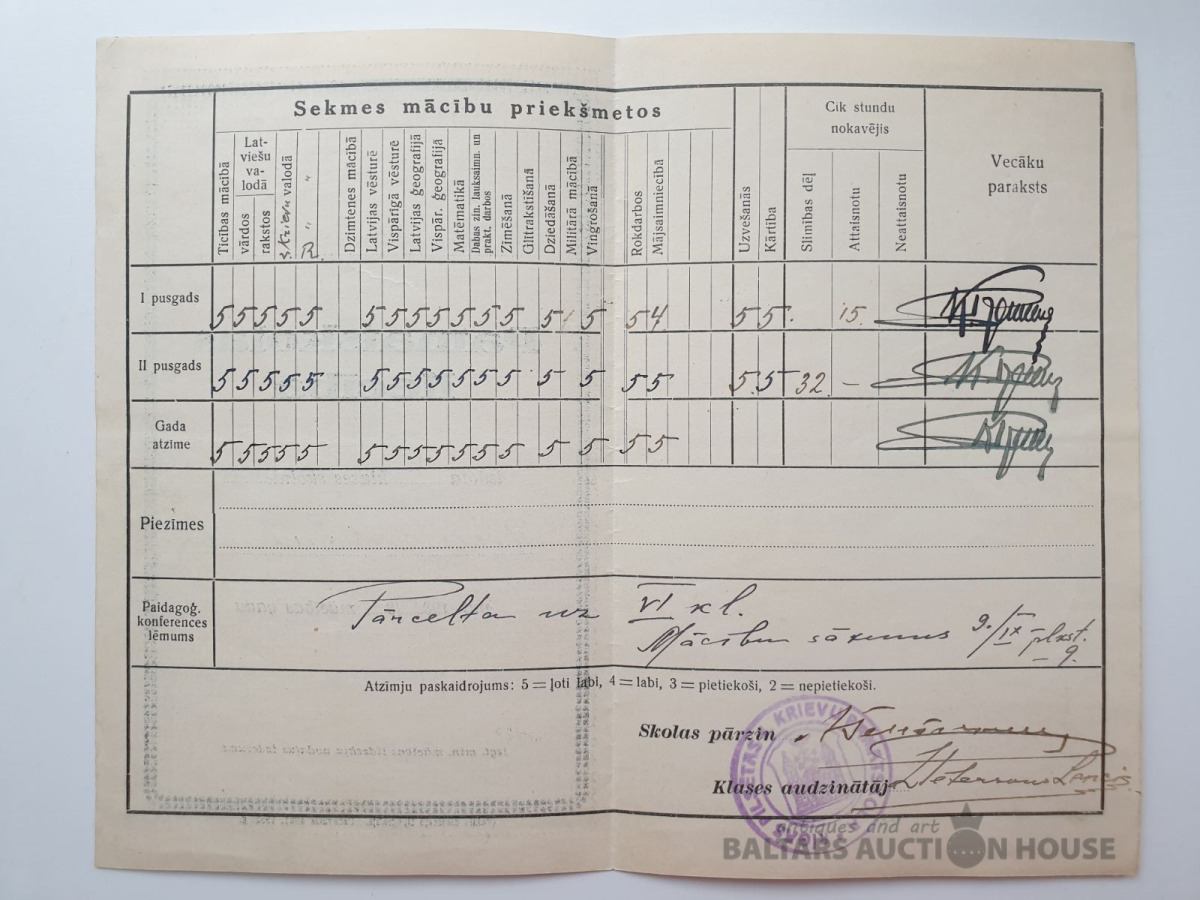 Sekmes mācību priekšmetos
Ticības mācībā
Lat-
viešu
va-
lodā
vārdos
rakstos
valodā
R.
" "
Dzimtenes mācībā
Latvijas vēsturē
Vispārīgā vēsturē
Latvijas ģeografijā
Vispār. ģeografijā
Matēmatikā
Dabas zin. lauksaimn. un
prakt. darbos
Zīmēšanā
Glītrakstīšanā
Dziedāšanā
Militārā mācībā
Vingrošanā
Rokdarbos
Mājsaimniecībā
Uzvešanās
Kārtība
Cik stundu
nokavējis
Slimības dēļ
Attaisnotu
Neattaisnotu
Vecāku
paraksts
I pusgads
5 5 5 5 5 5 5 5 5 5 5 5 5 5 5 4 5 5. 15.
II pusgads
5 5 5 5 5 5 5 5 5 5 5 5 5 5 5 5 5. 5 32. –
Gada
atzīme
5 5 5 5 5 5 5 5 5 5 5 5 5 5 5 5
Piezīmes
Paidagoģ.
konferences
lēmums
Pārcelta uz VI kl.
Mācību sākums 9./IX plkst.
– 9.
Atzīmju paskaidrojums: 5 = ļoti labi, 4 = labi, 3 = pietiekoši, 2 = nepietiekoši.
Skolas pārzin
Klases audzinātāj
RĪGAS PILSĒTAS KRIEVU
antiques and art
BALTARS AUCTION HOUSE